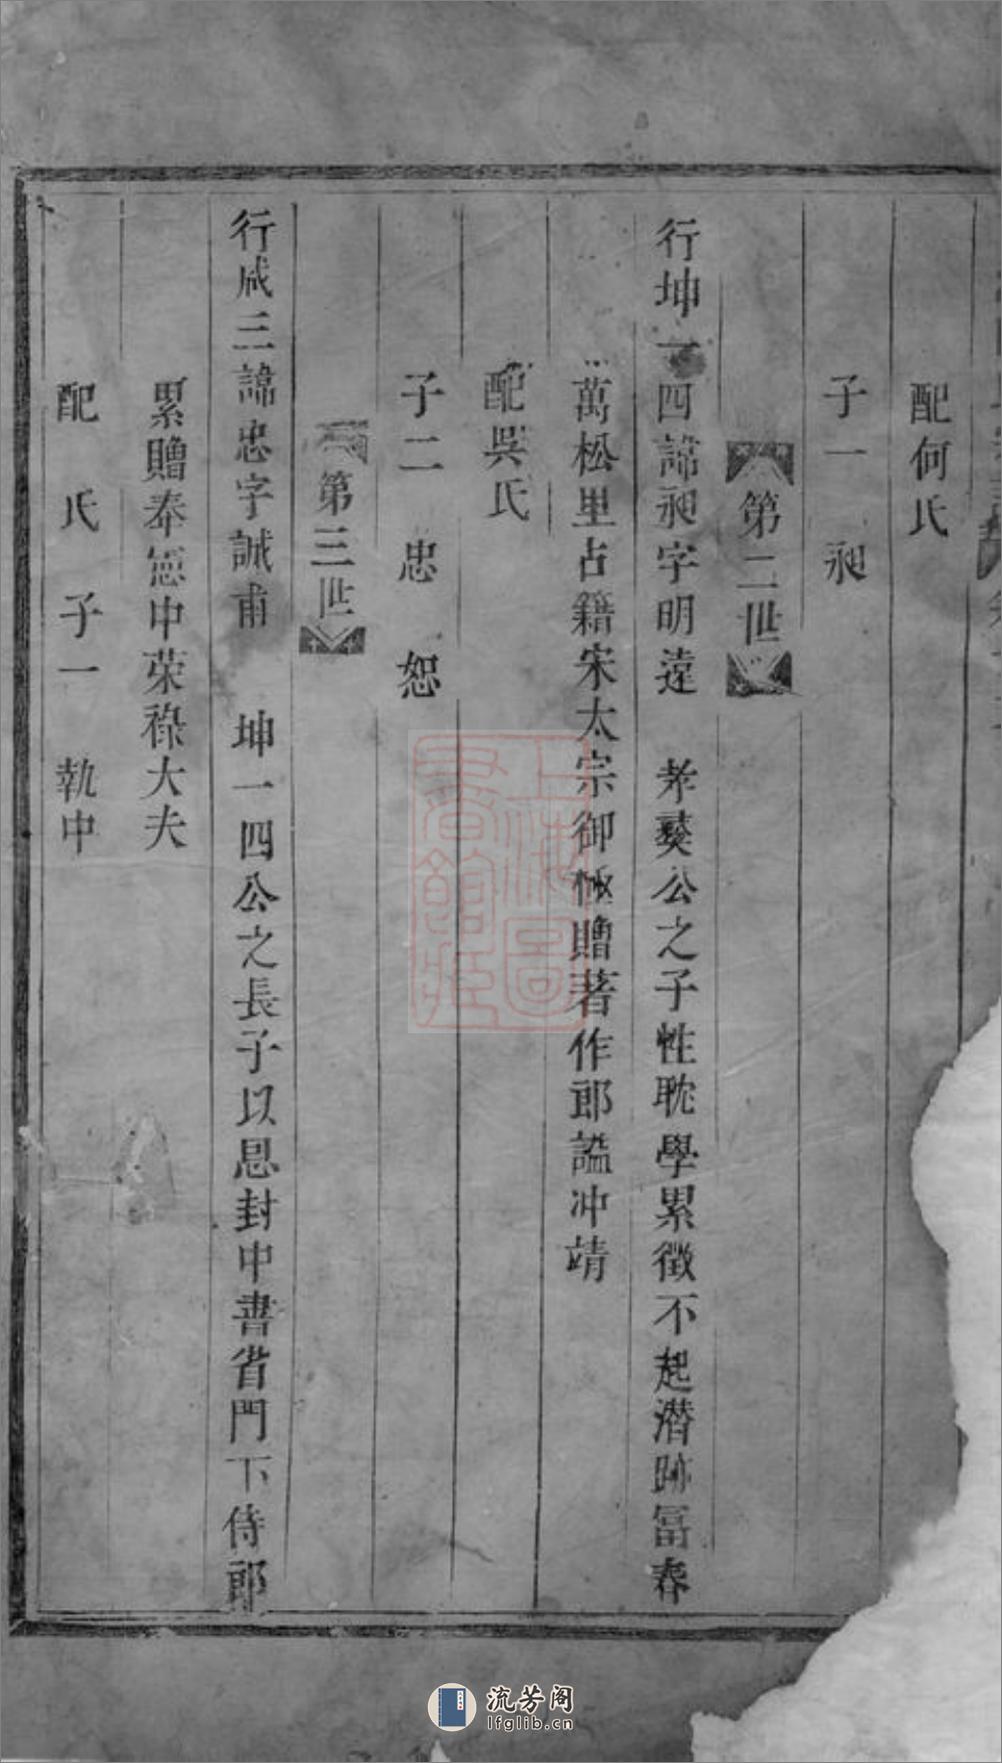 配何氏
子一　昶
第二世
行坤一四諱昶字明遠　孝義公之子性耽學累徵不起潛跡富春
萬松里占籍宋太宗御極贈著作郎諡冲靖
配吳氏
子二　忠　恕
第三世
行咸三諱忠字誠甫　坤一四公之長子以恩封中書省門下侍郎
累贈奉憲中荣祿大夫
配　氏　子一　執中
上海圖書館藏
流芳阁
lfglib.cn